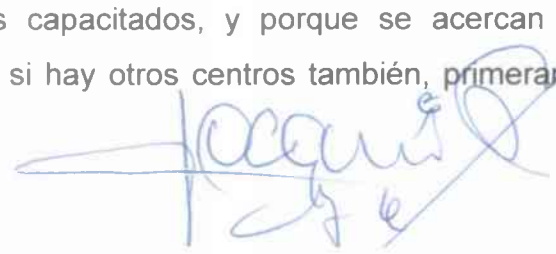 s capacitados, y porque se acercan
si hay otros centros también, primeram